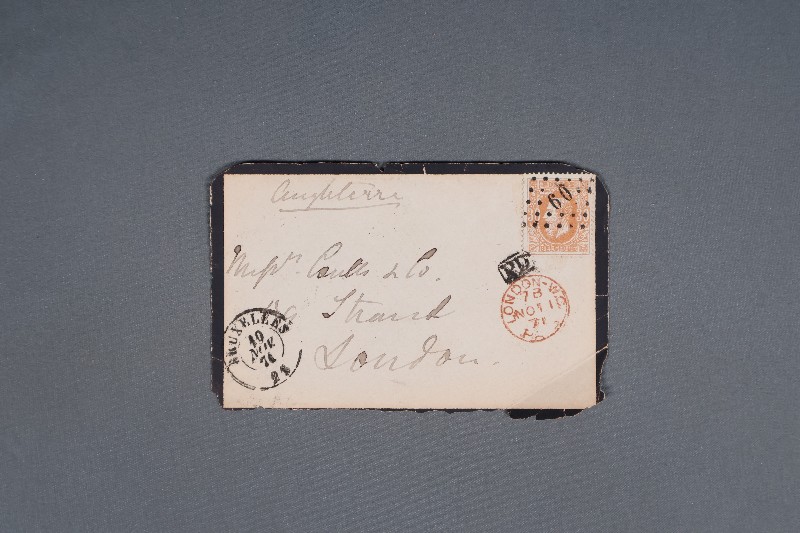 Angleterre
60
Messrs. Coutts & Co.
PD
Strand
London.
LONDON-W.C
7B
NO 11
71
BRUXELLES
10
NOV
71